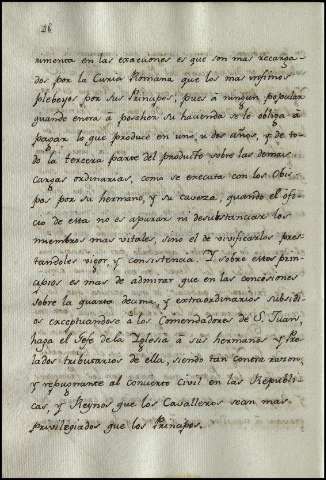 26
rimenta en las exacciones es que son mas recarga-
dos por la Curia Romana que los mas infimos
plebeyos por sus Principes, pues à ningun popular
quando entra à posseher su hacienda se le obliga à
pagar lo que produce en uno, u dos años, y de to-
do la tercera parte del producto sobre las demas
cargas ordinarias, como se executa con los Obis
pos por su hermano, y su caveza, quando el ofi-
cio de esta no es apurar ni desubstanciar los
miembros mas vitales, sino el de vivificarlos pres-
tandoles vigor y consistencia. Y sobre estos prin-
cipios es mas de admirar que en las concesiones
sobre la quarta decima, y extraordinarios subsidi
os exceptuandose à los Comendadores de S. Juan,
haga el Jefe de la Iglesia à sus hermanos y Pre
lados tributarios de ella, siendo tan contra razon,
y repugnante al concierto Civil en las Republi-
cas, y Reynos que los Cavalleros sean mas
privilegiados que los Principes.